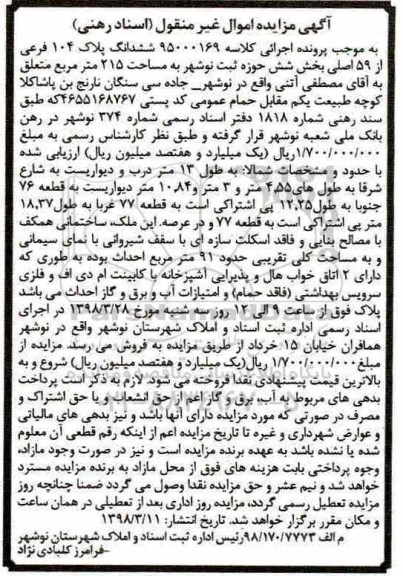 آگهی مزایده اموال غیر منقول (اسناد رهنی)
به موجب پرونده اجرائی کلاسه ۹۵۰۰۰۱۶۹ ششدانگ پلاک ۱۰۴ فرعی
از ۵۹ اصلی بخش شش حوزه ثبت نوشهر به مساحت ۲۱۵ متر مربع متعلق
به آقای مصطفی آتنی واقع در نوشهر_ جاده سی سنگان نارنج بن پاشاکلا
کوچه طبیعت یکم مقابل حمام عمومی کد پستی ۴۶۵۵۱۶۸۷۶۷که طبق
سند رهنی شماره ۱۸۱۸ دفتر اسناد رسمی شماره ۳۷۴ نوشهر در رهن
بانک ملی شعبه نوشهر قرار گرفته و طبق نظر کارشناس رسمی به مبلغ
۱/۷۰۰/۰۰۰/۰۰۰ریال (یک میلیارد و هفتصد میلیون ریال) ارزیابی شده
با حدود و مشخصات شمالا: به طول ۱۳ متر درب و دیواریست به شارع
شرقا به طول های۴,۵۵ متر و ۳ متر و۱۰,۸۴ متر دیواریست به قطعه ۷۶
جنوبا به طول۱۲,۲۵ پی اشتراکی است به قطعه ۷۷ غربا به طول۱۸,۳۷
متر پی اشتراکی است به قطعه ۷۷ و در عرصه، این ملک، ساختمانی همکف
با مصالح بنایی و فاقد اسکلت سازه ای با سقف شیروانی با نمای سیمانی
و به مساحت کلی تقریبی حدود ۹۱ متر مربع احداث بوده به طوری که
دارای ۲ اتاق خواب هال و پذیرایی آشپزخانه با کابینت ام دی اف و فلزی
سرویس بهداشتی (فاقد حمام) و امتیازات آب و برق و گاز احداث می باشد
پلاک فوق از ساعت ۹ الی ۱۲ روز سه شنبه مورخ ۱۳۹۸/۳/۲۸ در اجرای
اسناد رسمی اداره ثبت اسناد و املاک شهرستان نوشهر واقع در نوشهر
همافران خیابان ۱۵ خرداد از طریق مزایده به فروش می رسد. مزایده از
مبلغ۱/۷۰۰/۰۰۰/۰۰۰ ریال(یک میلیارد و هفتصد میلیون ریال) شروع و به
بالاترین قیمت پیشنهادی نقدا فروخته می شود. لازم به ذکر است پرداخت
بدهی های مربوط به آب، برق و گاز اعم از حق انشعاب و یا حق اشتراک و
مصرف در صورتی که مورد مزایده دارای آنها باشد و نیز بدهی های مالیاتی
و عوارض شهرداری و غیره تا تاریخ مزایده اعم از اینکه رقم قطعی آن معلوم
شده یا نشده باشد به عهده برنده مزایده است و نیز در صورت وجود مازاد،
وجوه پرداختی بابت هزینه های فوق از محل مازاد به برنده مزایده مسترد
خواهد شد و نیم عشر و حق مزایده نقدا وصول می گردد ضمنا چنانچه روز
مزایده تعطیل رسمی گردد، مزایده روز اداری بعد از تعطیلی در همان ساعت
و مکان مقرر برگزار خواهد شد. تاریخ انتشار: ۱۳۹۸/۳/۱۱
م الف ۹۸/۱۷۰/۷۷۷۳رئیس اداره ثبت اسناد و املاک شهرستان نوشهر
-فرامرز کلبادی نژاد